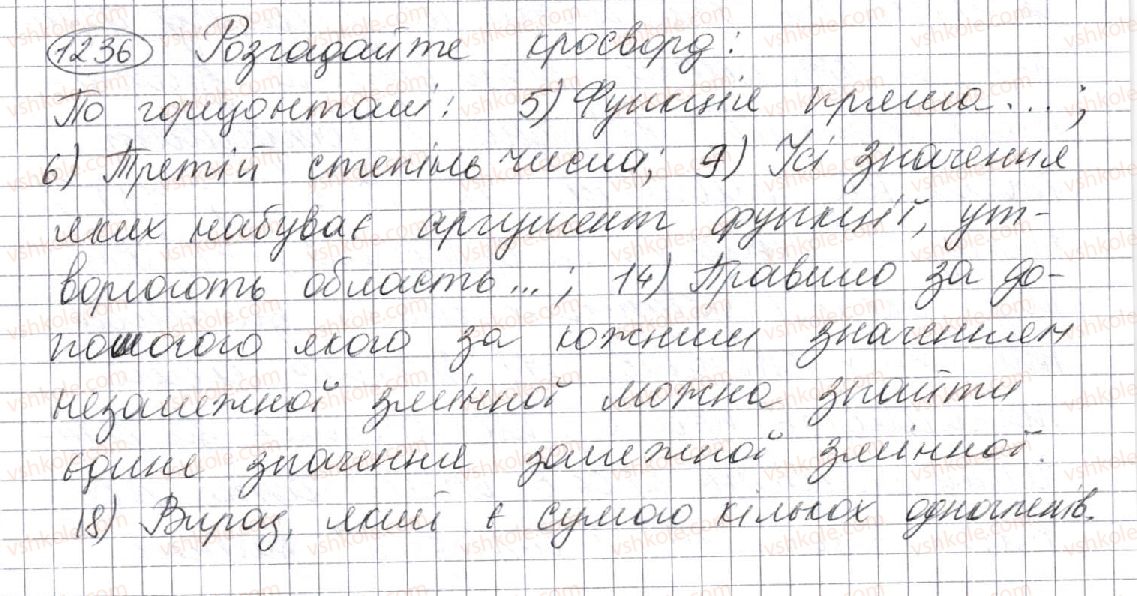 1236 Розгадайте кросворд:
По горизонталі: 5) Функція пряма...;
6) Третій степінь числа; 9) Усі значення
яких набуває аргумент функції, ут-
ворюють область...; 14) Правило за до-
помогою якого за кожним значенням
незалежної змінної можна знайти
єдине значення залежної змінної.
18) Вираз, який є сумою кількох одночленів.